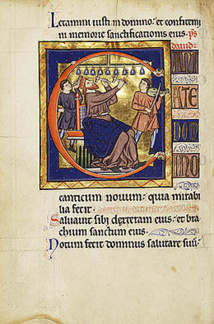 Letamini iusti in domino: et confitemi
ni memorie sanctificationis eius. ps
david:
C AN
TATE
DOM
INO
canticum novum: quia mirabi
lia fecit.
Salvavit sibi dextera eius: et bra
chium sanctum eius.
Notum fecit dominus salutare suu